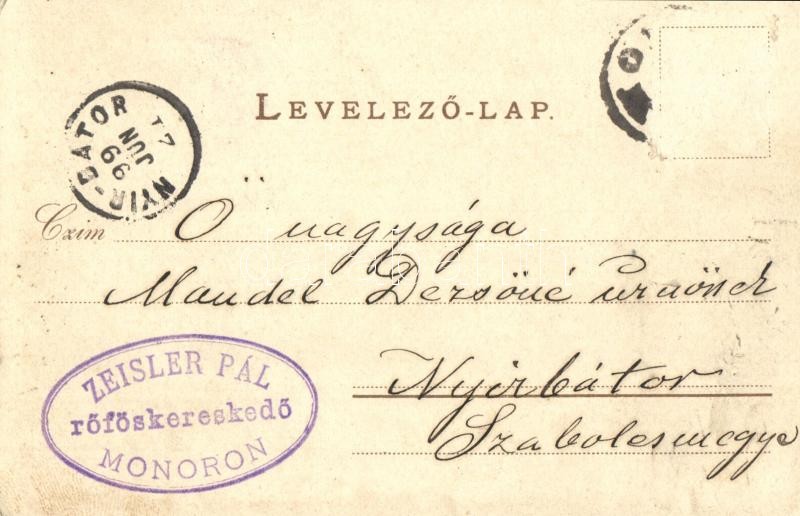 LEVELEZŐ-LAP.
NYIR-BATOR
99
JUN
Czim
Ö nagysága
Mandel Dezsőné úrnőnek
Nyirbátor
Szabolcsmegye
ZEISLER PÁL
rőföskereskedő
MONORON